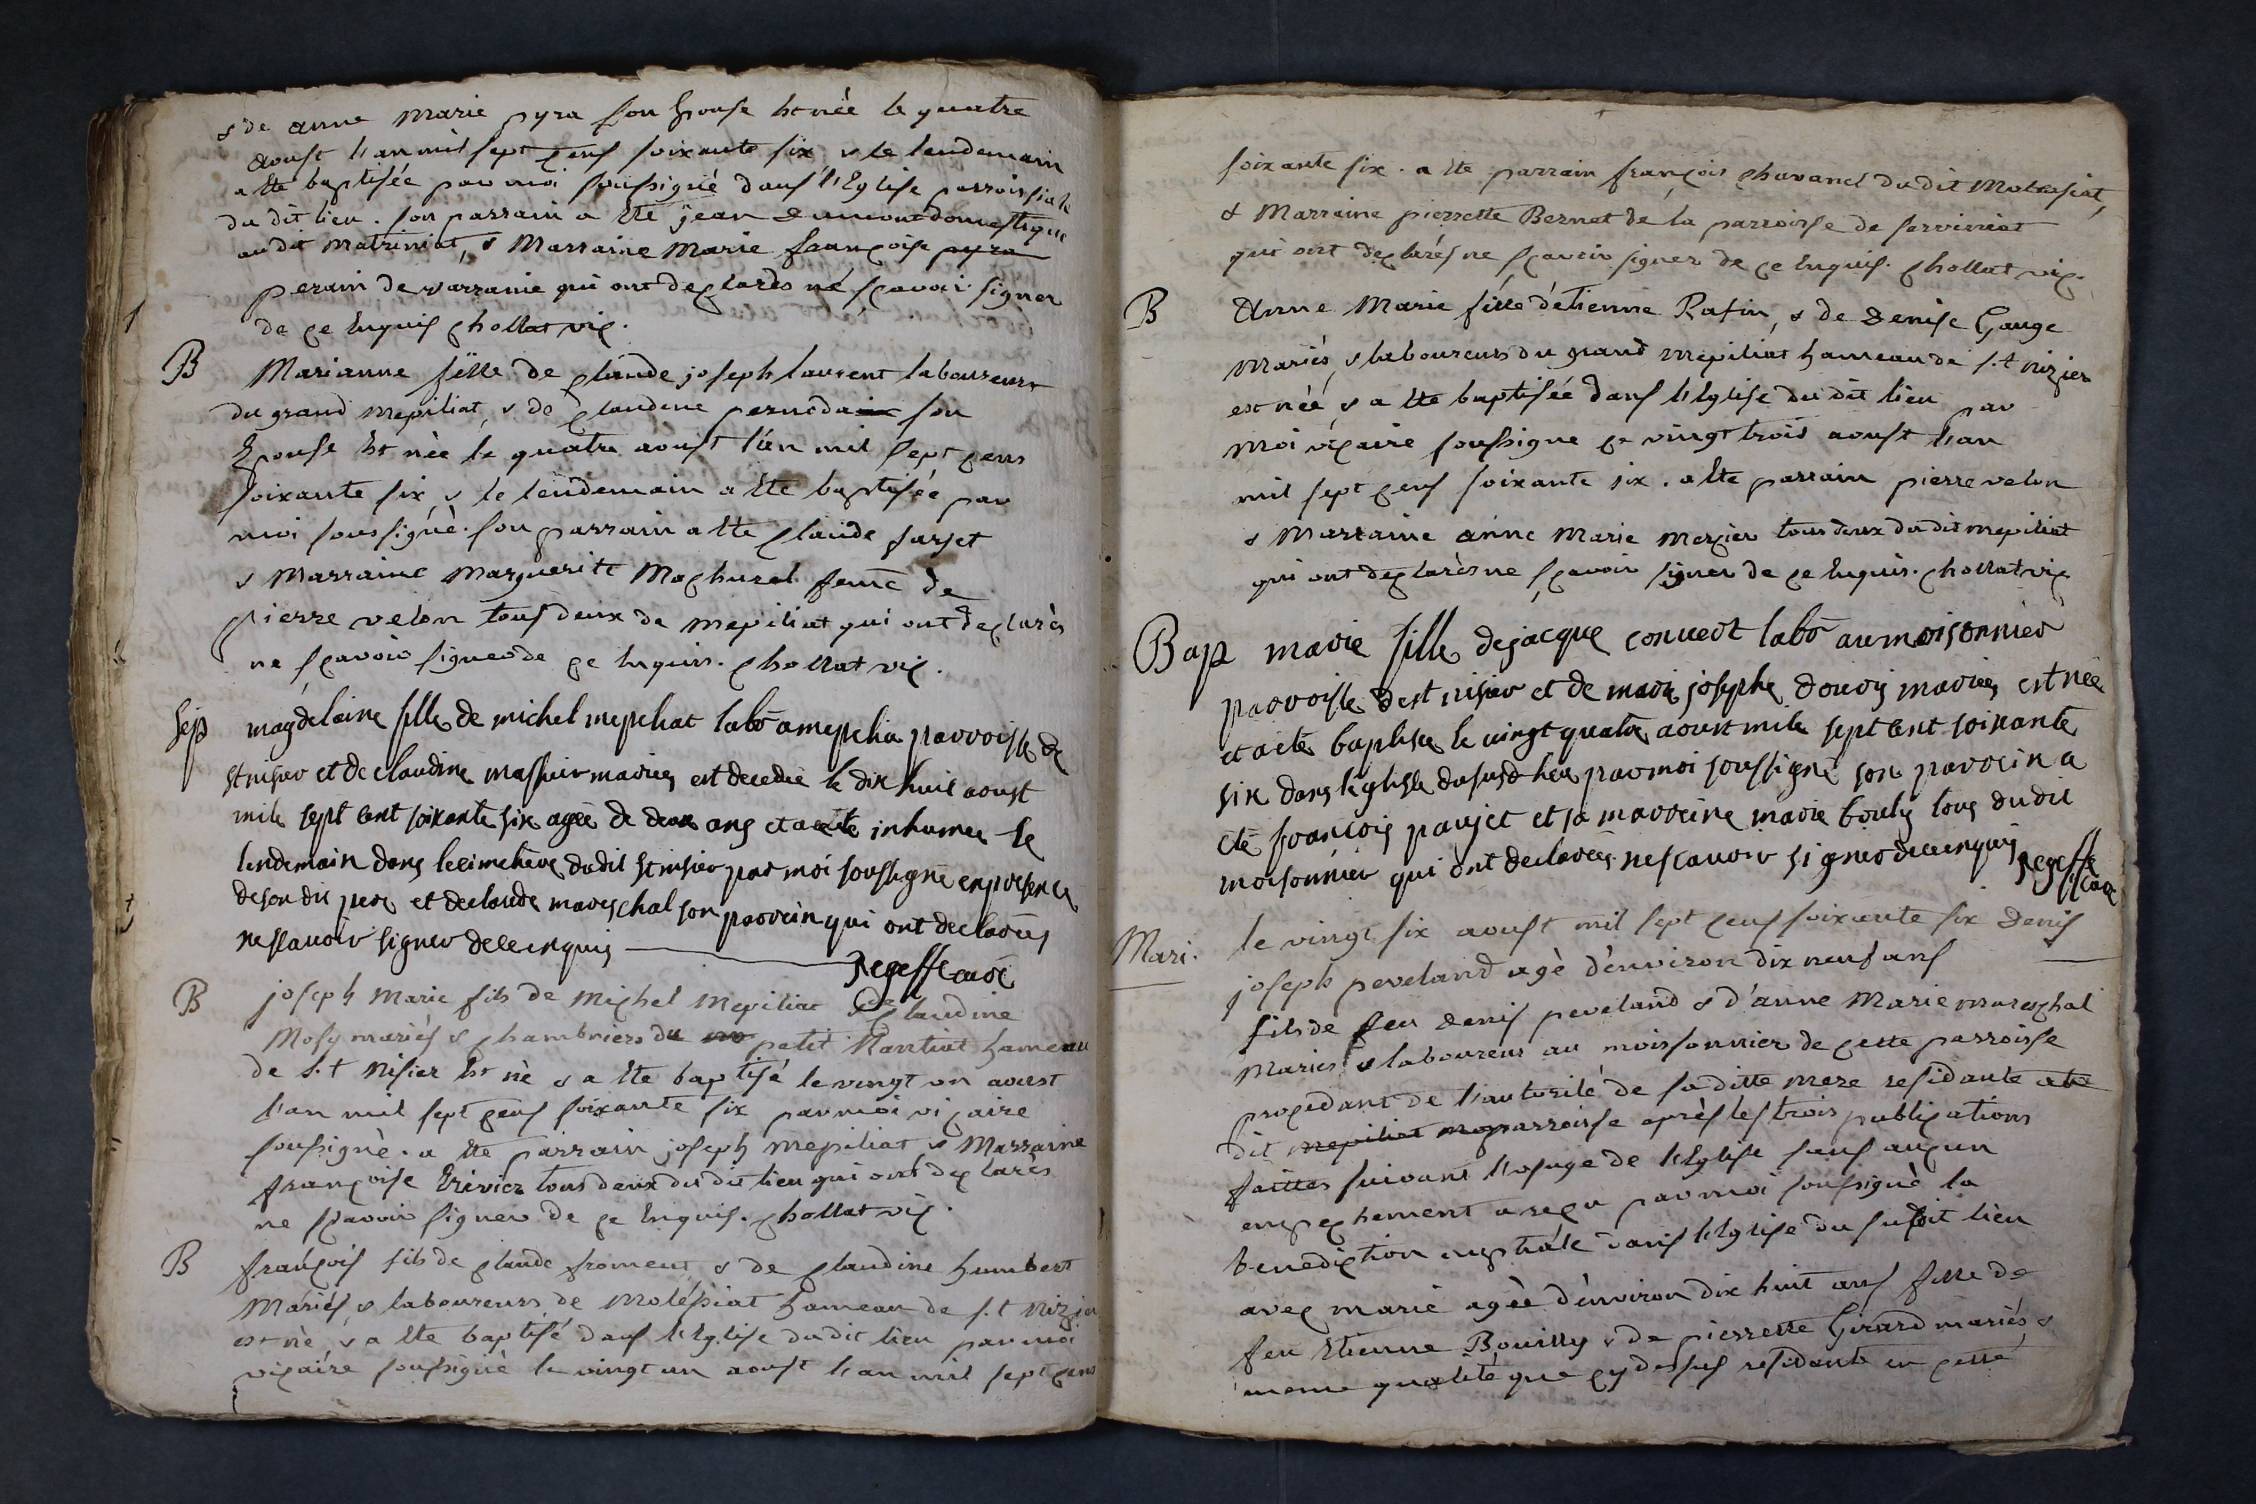 & de anne Marie pyra son Epouse Est née le quatre
aoust l'an mil sept Cens soixante six & le lendemain
a Eté baptisée par moi soussigné dans l'Eglise parroissiale
du dit lieu. son parrain a Eté jean dumont domestique
au dit Matriniat, & Marraine Marie françoise pyra
perain de varranie qui ont declarés ne sçavoir signer
de ce Enquis Chollat vic.
B
Marianne fille de Claude joseph laurent laboureurs
du grand mepiliat, & de Claudine pernodain son
Epouse Est née le quatre aoust l'an mil sept cens
soixante six & le lendemain a Eté baptisée par
moi soussigné. son parrain a Eté Claude farjet
& Marraine Marguerite Machurat feme de
pierre velon tous deux de mepiliat qui ont declarés
ne sçavoir signer de ce Enquis. Chollat vic.
Sep
magdelaine fille de michel mepchat labô a mepchia parroisse de
st nisier et de claudine massuir mariés est decedée le dix huit aoust
mile sept cent soixante six agée de deux ans et a eté inhumée le
lendemain dans le cimetiere dudit st nisier par moi soussigné en presence
de son dit pere et de claude mareschal son parrein qui ont declarés
ne scavoir signer de ce enquis
Regeffe curé
B
joseph Marie fils de Michel Mepiliat & de Claudine
Mosy mariés & Chambriers du petit Nantiat hameau
de S.t Nisier Est né & a Eté baptisé le vingt un aoust
l'an mil sept Cens soixante six par moi vicaire
soussigné. a Eté parrain joseph mepiliat & Marraine
françoise Erivier tous deux du dit lieu qui ont declarés
ne sçavoir signer de ce Enquis. Chollat vic.
B
françois fils de Claude froment & de Claudine humbert
Mariés & laboureurs de Molépiat hameau de S.t Nizier
est né, & a Eté baptisé dans l'Eglise du dit lieu par moi
vicaire soussigné le vingt un aoust l'an mil sept cens
soixante six. a Eté parrain françois Chavanel du dit
& Marraine pierrette Bernet de la parroisse de serviniat
qui ont declarés ne sçavoir signer de ce Enquis. Chollat vic.
B
Anne Marie fille d'etienne Rafin, & de Denise Gauge
Mariés, & laboureurs du grand mepiliat hameau de S.t nizier
est née & a Eté baptisée dans l'Eglise du dit lieu par
moi vicaire soussigné ce vingt trois aoust l'an
mil sept Cens soixante six. a Eté parrain pierre velon
& Marraine anne Marie Mercier tous deux du dit mepiliat
qui ont declarés ne sçavoir signer de ce Enquis. Chollat vic
Bap
marie fille de jacque convert labô au moisonnier
parroisse de st nisier et de marie josephe douvis mariés est née
et a eté baptisée le vingt quatre aoust mile sept cent soixante
six dans leglise du susd lieu par moi soussigné son parrein a
eté francois parjet et sa marreine marie bouly tous du dit
moisonnier qui ont declarés ne scavoir signer de ce enquis Regeffe
curé
Mari.
le vingt six aoust mil sept Cens soixante six Denis
joseph peveland agé d'environ dix neuf ans
fils de feu denis peveland & d'anne Marie marechal
Mariés & laboureurs au moissonnier de cette parroisse
procedant de l'autorité de sa ditte mere residante
dit mepiliat parroisse après les trois publications
faittes suivant l'usage de l'Eglise sans aucun
empechement a reçu par moi soussigné la
benediction nuptiale dans l'Eglise du susdit lieu
avec marie agée d'environ dix huit ans fille de
feu Etienne Bouilly & de pierrette Girard mariés &
meme qualité que cy dessus residante en cette